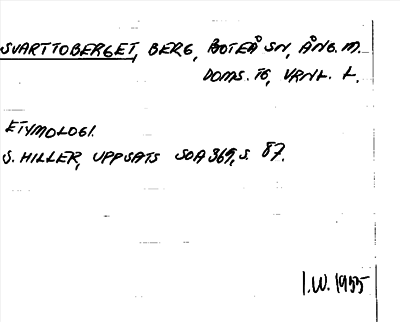 SVARTTOBERGET, BERG, BOTEÅ SN, ÅNG. M.
DOMS. TG, VRNL. L.
ETYMOLOGI.
S. HILLER, UPPSATS SOA 369, S. 87.
I.W. 1955